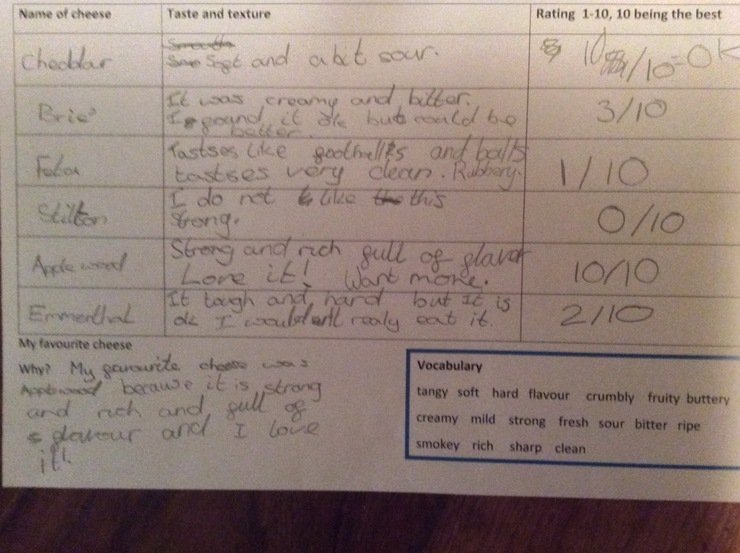 Name of cheese Taste and texture Rating 1-10, 10 being the best
Smooth
Cheddar Soft and a bit sour. 10/10=OK
It was creamy and bitter.
Brie I found it ok but could be 3/10
better.
Tastses like footballs and balls
Feta tastses very clean. Rubbery. 1/10
I do not like the this
Stilton Strong. 0/10
Strong and rich full of flavor
Apple wood Love it! Want more. 10/10
It tough and hard but it is
Emmerthal ok I wouldent realy eat it. 2/10
My favourite cheese
Why? My favourite cheese was
Applewood because it is strong
and rich and full of
flavour and I love
it!
Vocabulary
tangy soft hard flavour crumbly fruity buttery
creamy mild strong fresh sour bitter ripe
smokey rich sharp clean